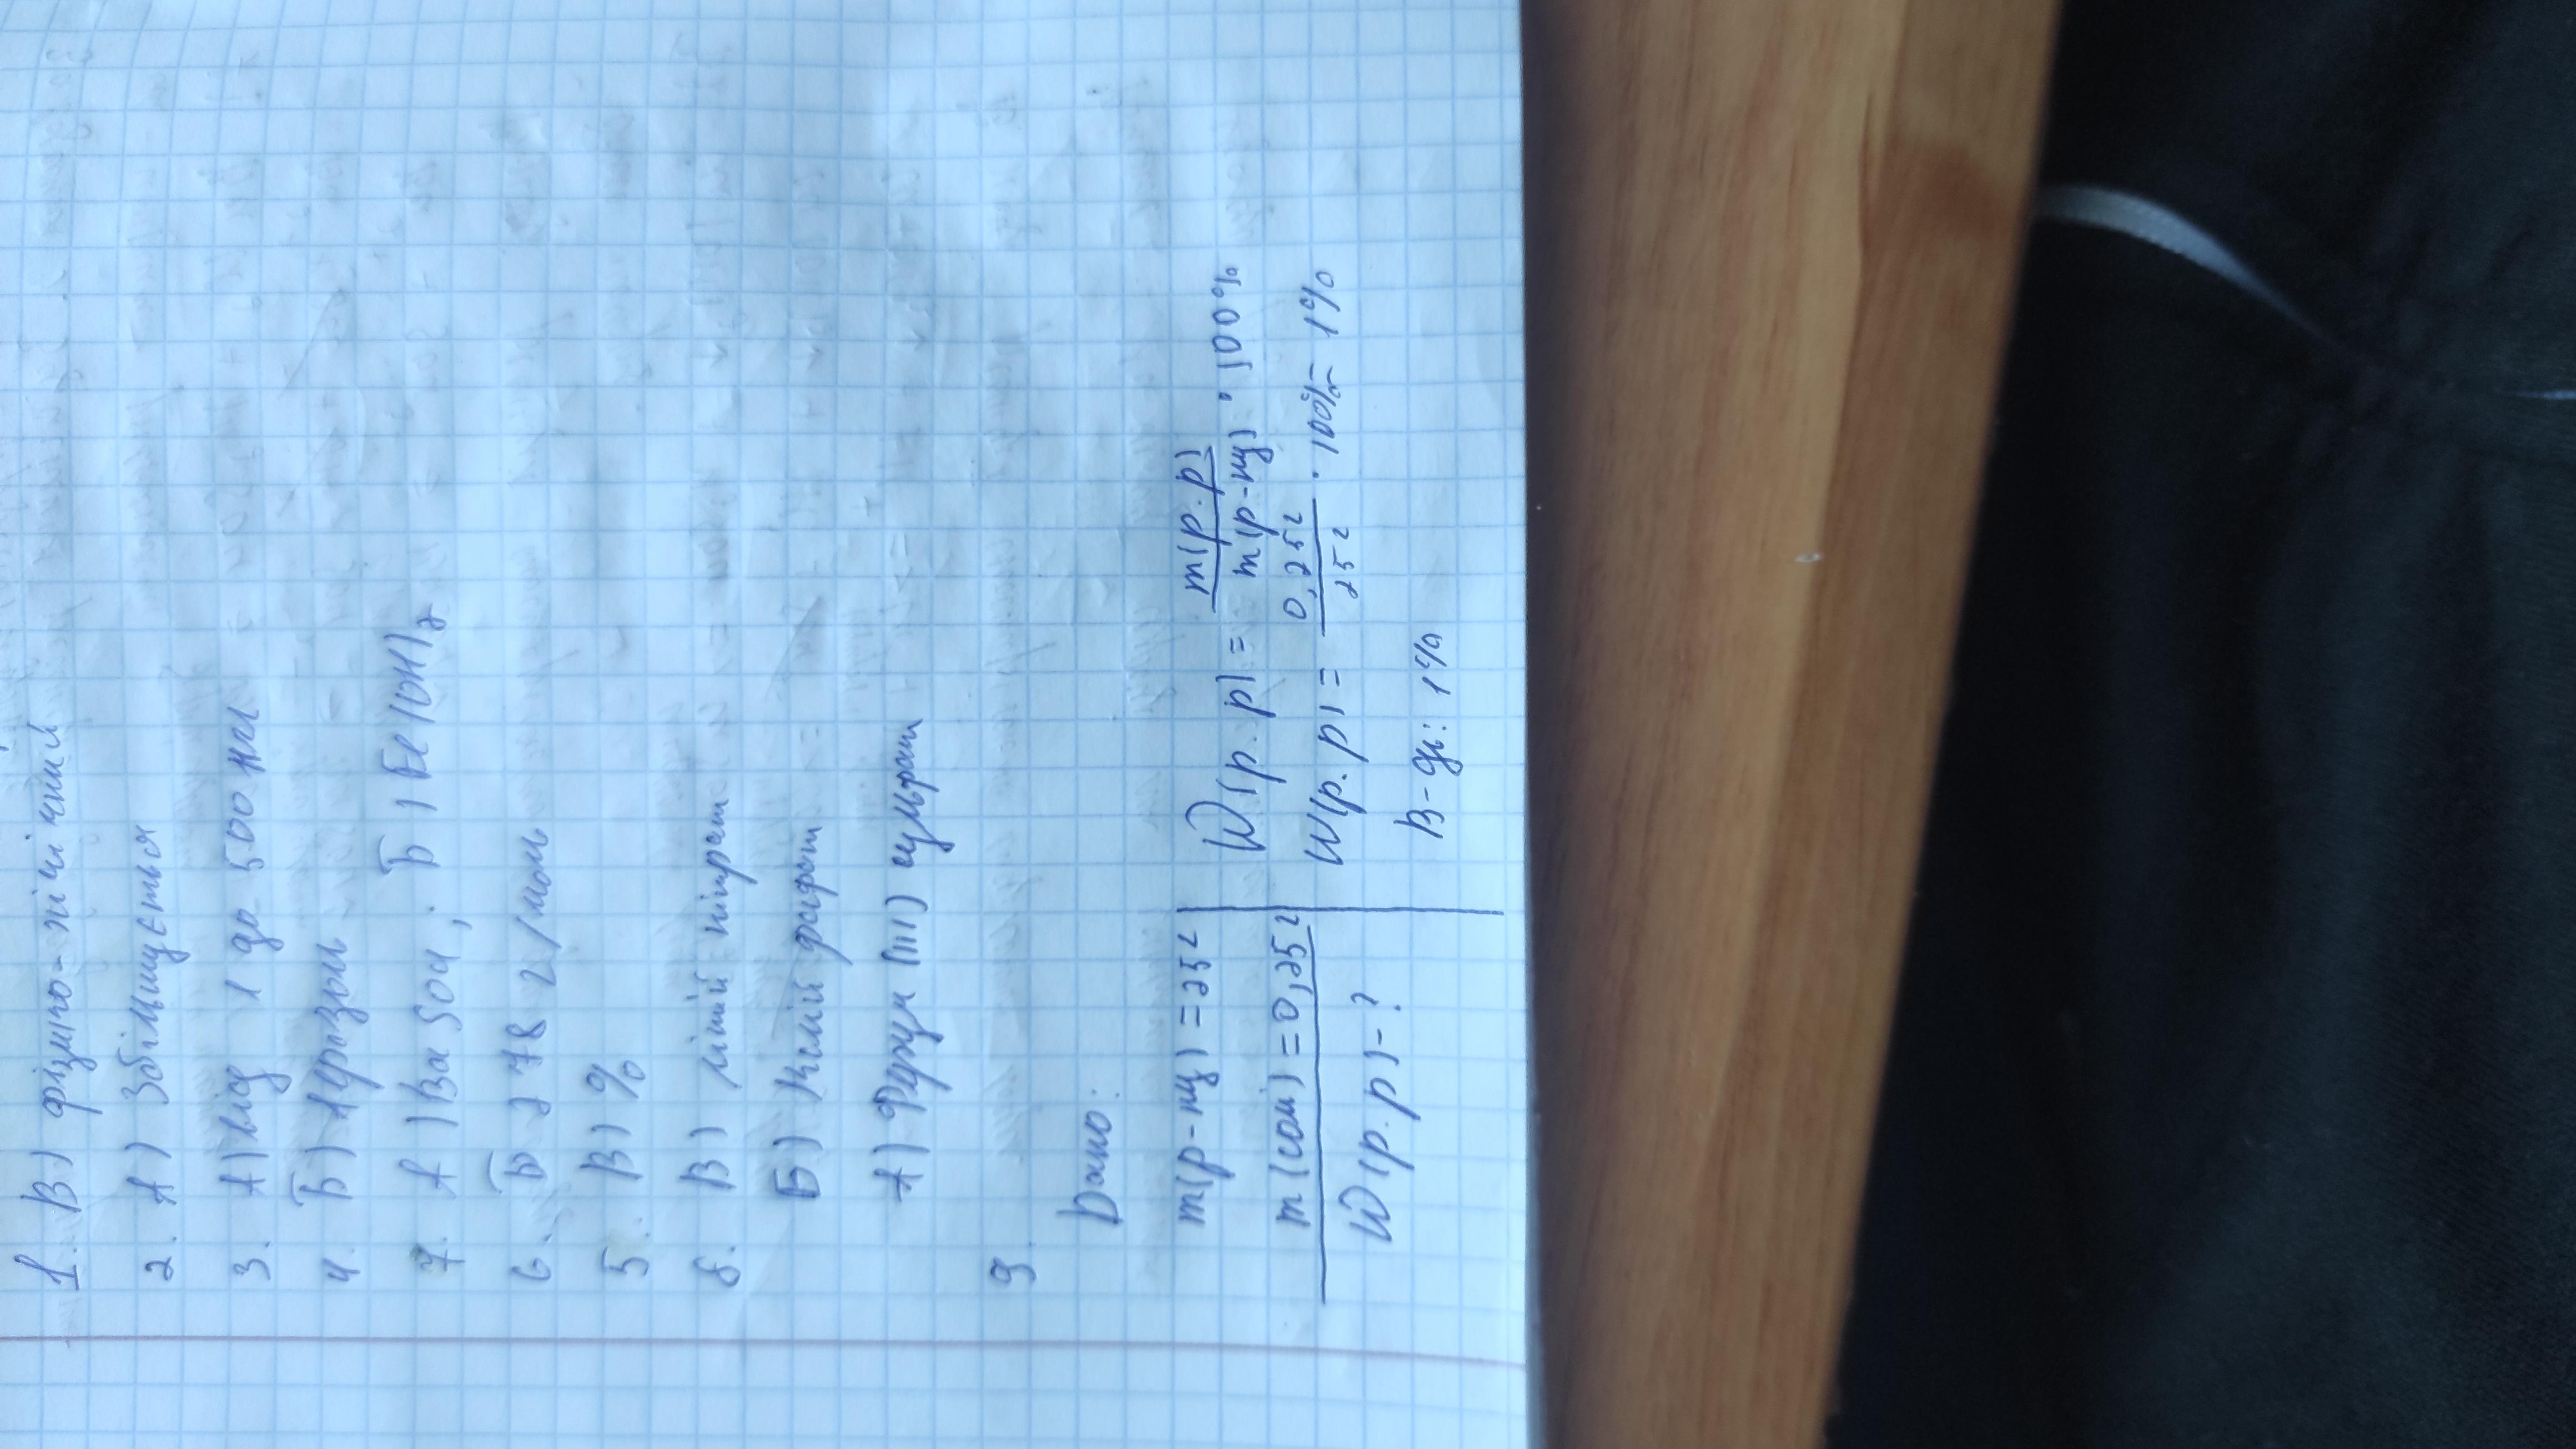 1. В) фізико-хімічний
2. А) Збільшується
3. А) від 1 до 500 нм
4. Б) Аерозоль
7. А) BaSO4; Б) Fe(OH)2
6. Б 278 г/моль
5. В) %
8. В) літій нітрат
Б) Калій фосфат
А) Ферум (III) сульфат
9.
Дано:
m(р-ну) = 25 г
m(солі) = 0,25 г
W(р.р) - ?
W(р.р) = m(р.р) / m(р-ну) · 100%
W(р.р) = 0,25 г / 25 г · 100% = 1%
В-дь: 1%